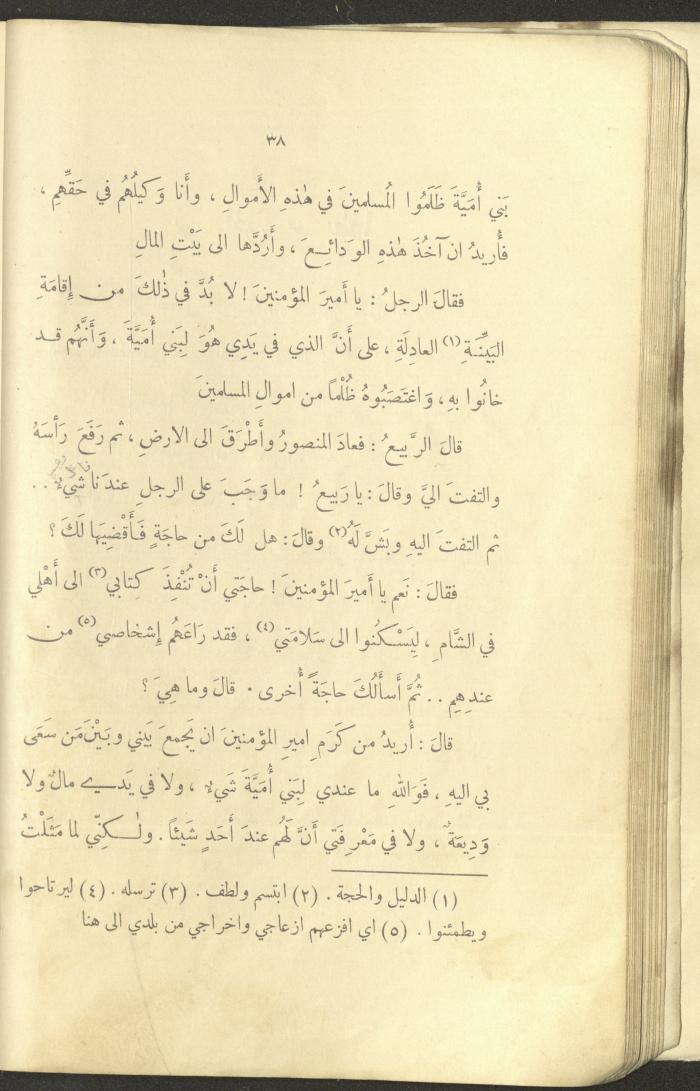 ٣٨
بَني أُمَيَّةَ ظَلَمُوا المُسلمينَ في هٰذهِ الأَموالِ ، وأَنا وَكيلُهُم في حَقِّهِم ،
فأُريدُ ان آخُذَ هٰذهِ الودائعَ ، وأَرُدَّها الى بَيْتِ المالِ
فقالَ الرجلُ : يا أَميرَ المؤمنينَ ! لا بُدَّ في ذٰلكَ من إِقامَةِ
البَيِّنَةِ (١) العادِلَةِ ، على أَنَّ الذي في يَدِي هُوَ لِبَني أُمَيَّةَ ، وَأَنَّهُم قد
خانُوا بهِ ، وَاغتَصَبُوهُ ظُلْماً من اموالِ المسلمينَ
قالَ الرَّبيعُ : فعادَ المنصورُ وأَطْرَقَ الى الارضِ ، ثم رَفَعَ رَأسَهُ
والتفتَ اليَّ وقالَ : يا رَبيعُ ! ما وَجَبَ على الرجلِ عندَنا شيءٌ . .
ثم التفتَ اليهِ وبَشَّ لَهُ (٢) وقالَ : هل لَكَ من حاجَةٍ فَأَقْضِيَها لَكَ ؟
فقالَ : نَعم يا أَميرَ المؤمنينَ ! حاجَتي أَنْ تُنْفِذَ كِتابي (٣) الى أَهْلي
في الشَّامِ ، لِيَسْكُنوا الى سَلامَتي (٤) ، فقد رَاعَهُم إِشخاصي (٥) من
عندِهِم . . ثُمَّ أَسأَلُكَ حاجَةً أُخرى . قالَ وما هِيَ ؟
قالَ : أُريدُ من كَرَمِ اميرِ المؤمنينَ ان يَجمعَ بَيني وبَيْنَ مَن سَعَى
بي اليهِ ، فَوَاللهِ ما عندي لِبَني أُمَيَّةَ شَيءٌ ، ولا في يَدي مالٌ ولا
وَدِيعَةٌ ، ولا في مَعْرِفَتي أَنَّ لَهُم عندَ أَحَدٍ شَيئاً . ولٰكِنّي لما مَثَلْتُ
(١) الدليل والحجة . (٢) ابتسم ولطف . (٣) ترسله . (٤) ليرتاحوا
ويطمئنوا . (٥) اي افزعهم ازعاجي واخراجي من بلدي الى هنا